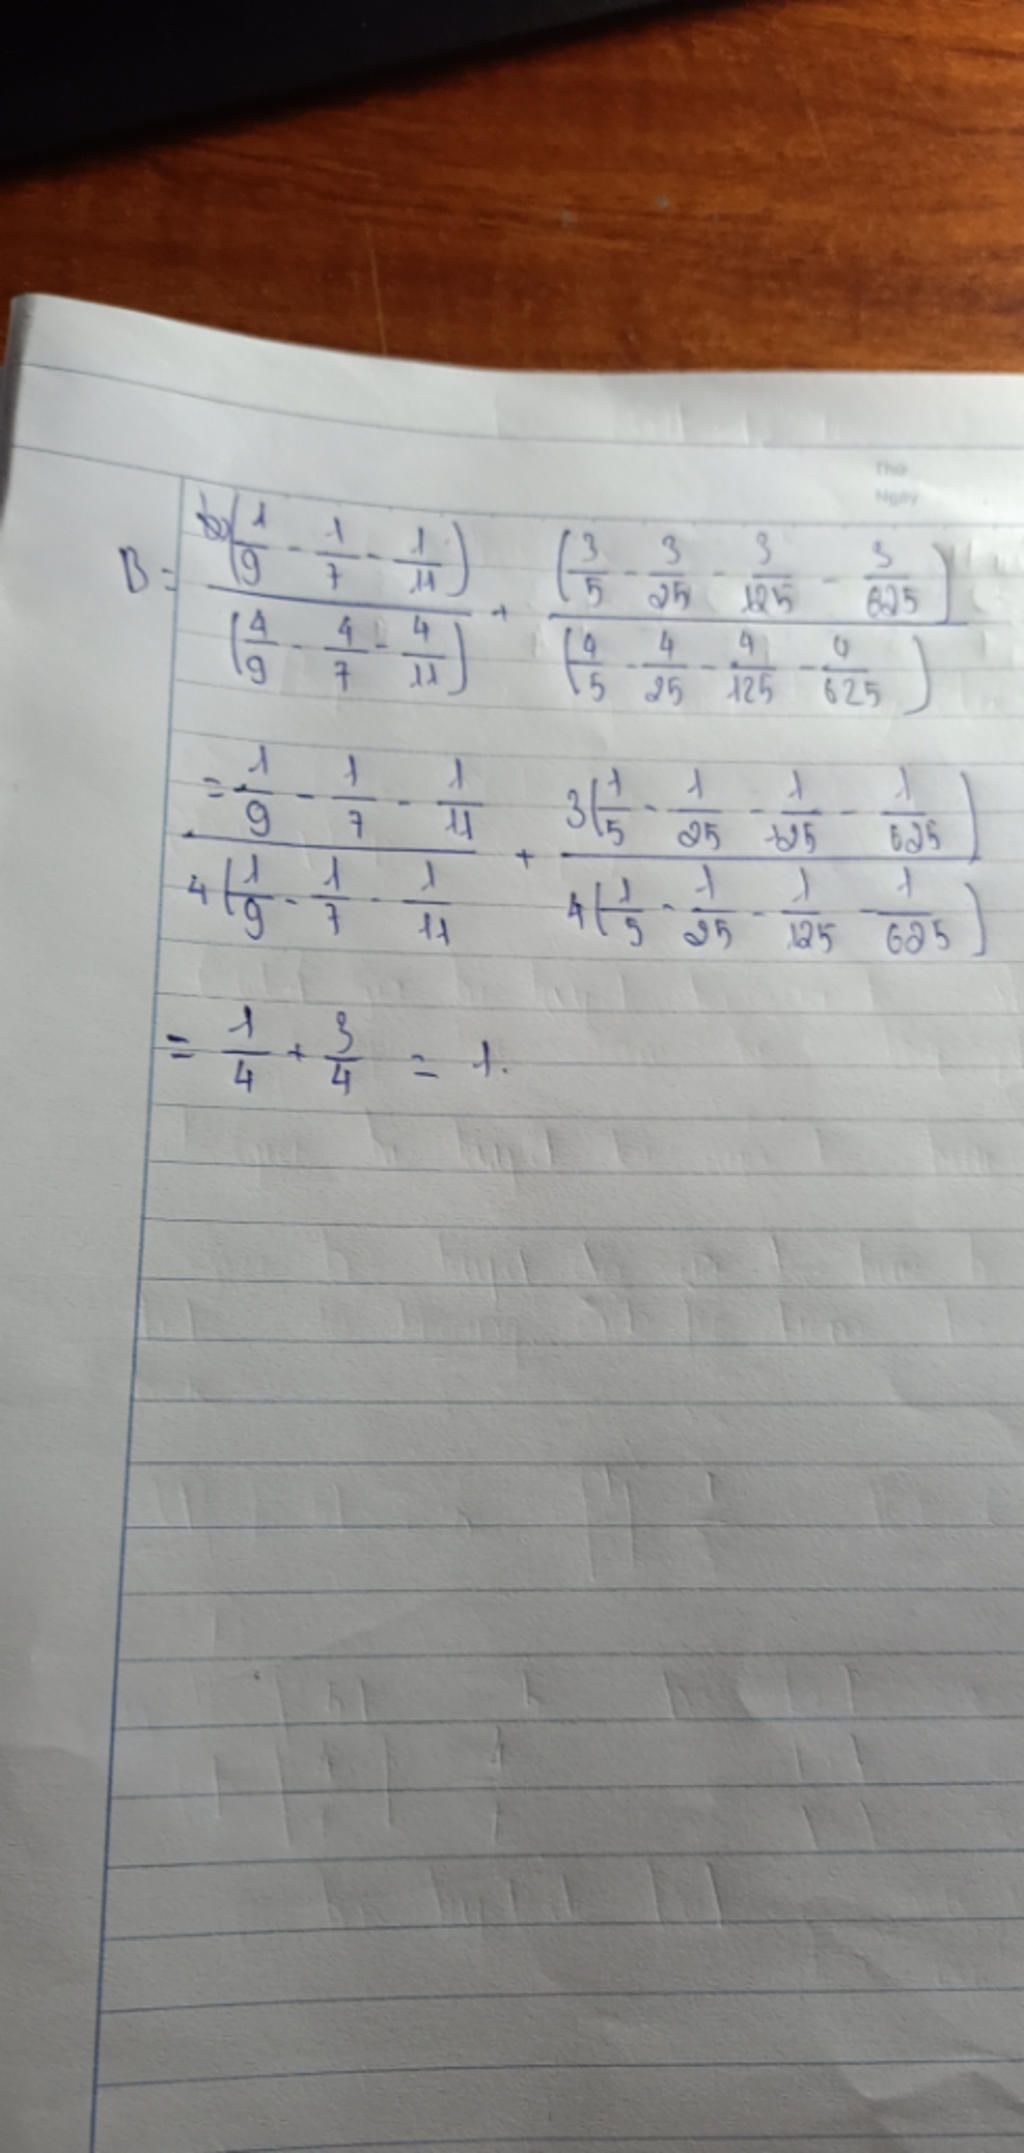 Thứ
Ngày
B = (1/9 - 1/7 - 1/11) / (4/9 - 4/7 - 4/11) + (3/5 - 3/25 - 3/125 - 3/625) / (4/5 - 4/25 - 4/125 - 4/625)
= 1/9 - 1/7 - 1/11 / 4(1/9 - 1/7 - 1/11 + 3(1/5 - 1/25 - 1/125 - 1/625) / 4(1/5 - 1/25 - 1/125 - 1/625)
= 1/4 + 3/4 = 1.